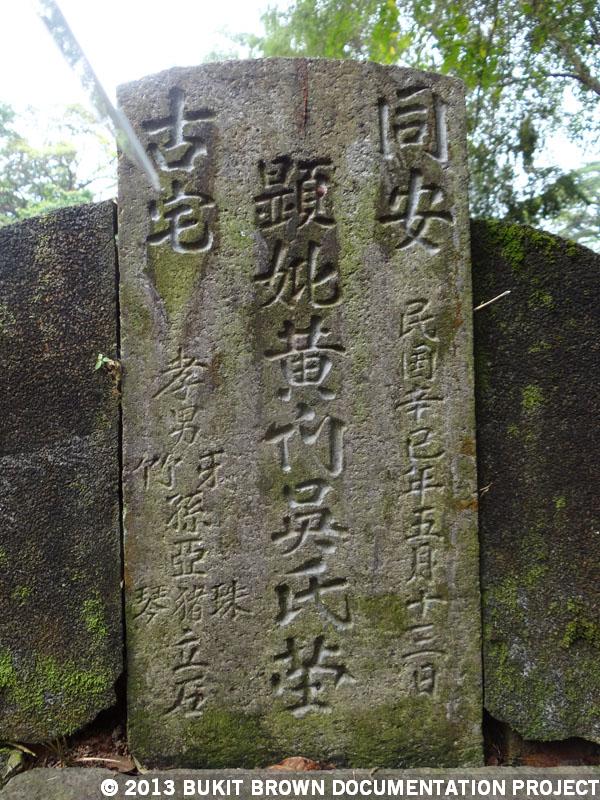 同安
民国辛巳年五月十三日
顯妣黄门吳氏
古宅
孝男
竹
孫亞猪
珠
琴
立石
© 2013 BUKIT BROWN DOCUMENTATION PROJECT